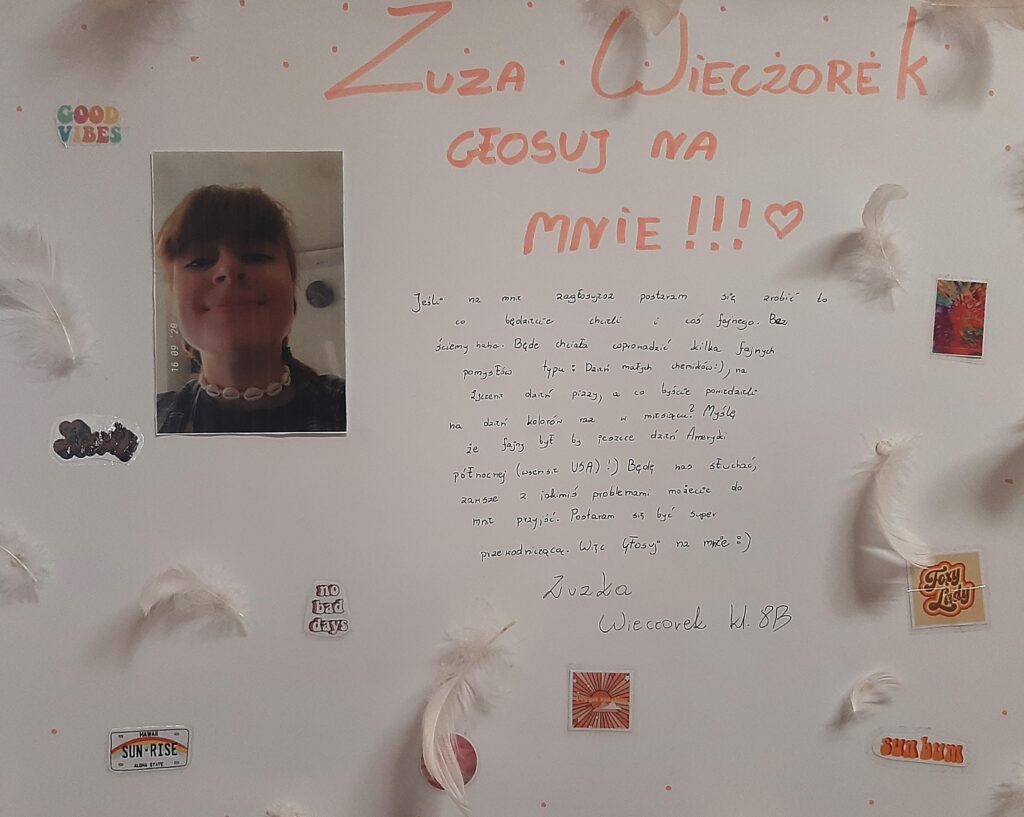 ZUZA WIECZOREK
GŁOSUJ NA
MNIE!!!♡
GOOD
VIBES
16 09 '20
Jeśli na mnie zagłosujesz postaram się zrobić to
co będziecie chcieli i coś fajnego. Bez
ściemy haha. Będe chciała wprowadzić kilka fajnych
pomysłów typu: Dzień małych chemików:), na
życzenie dzień pizzy, a co byście powiedzieli
na dzień kolorów raz w miesiącu? Myślę
że fajny był by jeszcze dzień Ameryki
północnej (wsensie USA) :) Będę nas słuchać,
zawsze z jakimiś problemami możecie do
mnie przyjść. Postaram się być super
przewodniczącą. Więc Głosuj na mnie :)
Zuzka
Wieczorek kl. 8B
no
bad
days
Foxy
Lady
HAWAII
SUN-RISE
ALOHA STATE
sun bum